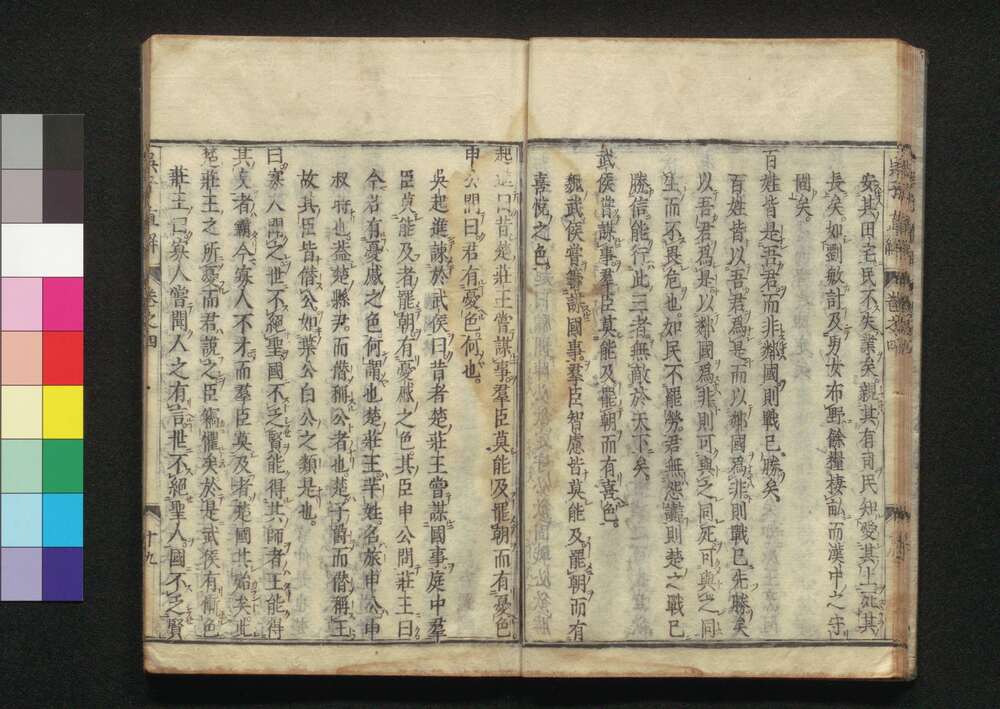 安其田宅民不失業矣親其有司民知愛其上死其
長矣如劉敏計及男女布野餘糧棲畝而漢中之守
固矣
百姓皆是吾君而非鄰國則戰已勝矣
百姓皆以吾君為是而以鄰國為非則戰已先勝矣
以吾君為是以鄰國為非則可與之同死可與之同
生而不畏危也如民不罷勞君無怨讟則楚之戰已
勝信能行此三者無敵於天下矣
武侯嘗謀事羣臣莫能及罷朝而有喜色
魏武侯嘗籌謀國事羣臣智慮皆莫能及罷朝而有
喜悅之色
起進曰昔楚莊王嘗謀事羣臣莫能及罷朝而有憂色
申公問曰君有憂色何也
吳起進諫於武侯曰昔者楚莊王嘗謀國事庭中羣
臣莫能及者罷朝有憂慼之色其臣申公問莊王曰
今君有憂慼之色何謂也楚莊王羋姓名旅申公申
叔時也葢楚縣尹而僭稱公者也楚子爵而僭稱王
故其臣皆僭公如葉公白公之類是也
曰寡人聞之世不絕聖國不乏賢能得其師者王能得
其友者霸今寡人不才而羣臣莫及者楚國其殆矣此
楚莊王之所憂而君說之臣竊懼矣於是武侯有慚色
莊王曰寡人嘗聞人之有言世不絕聖人國不乏賢
吳子直解
卷之四
十九